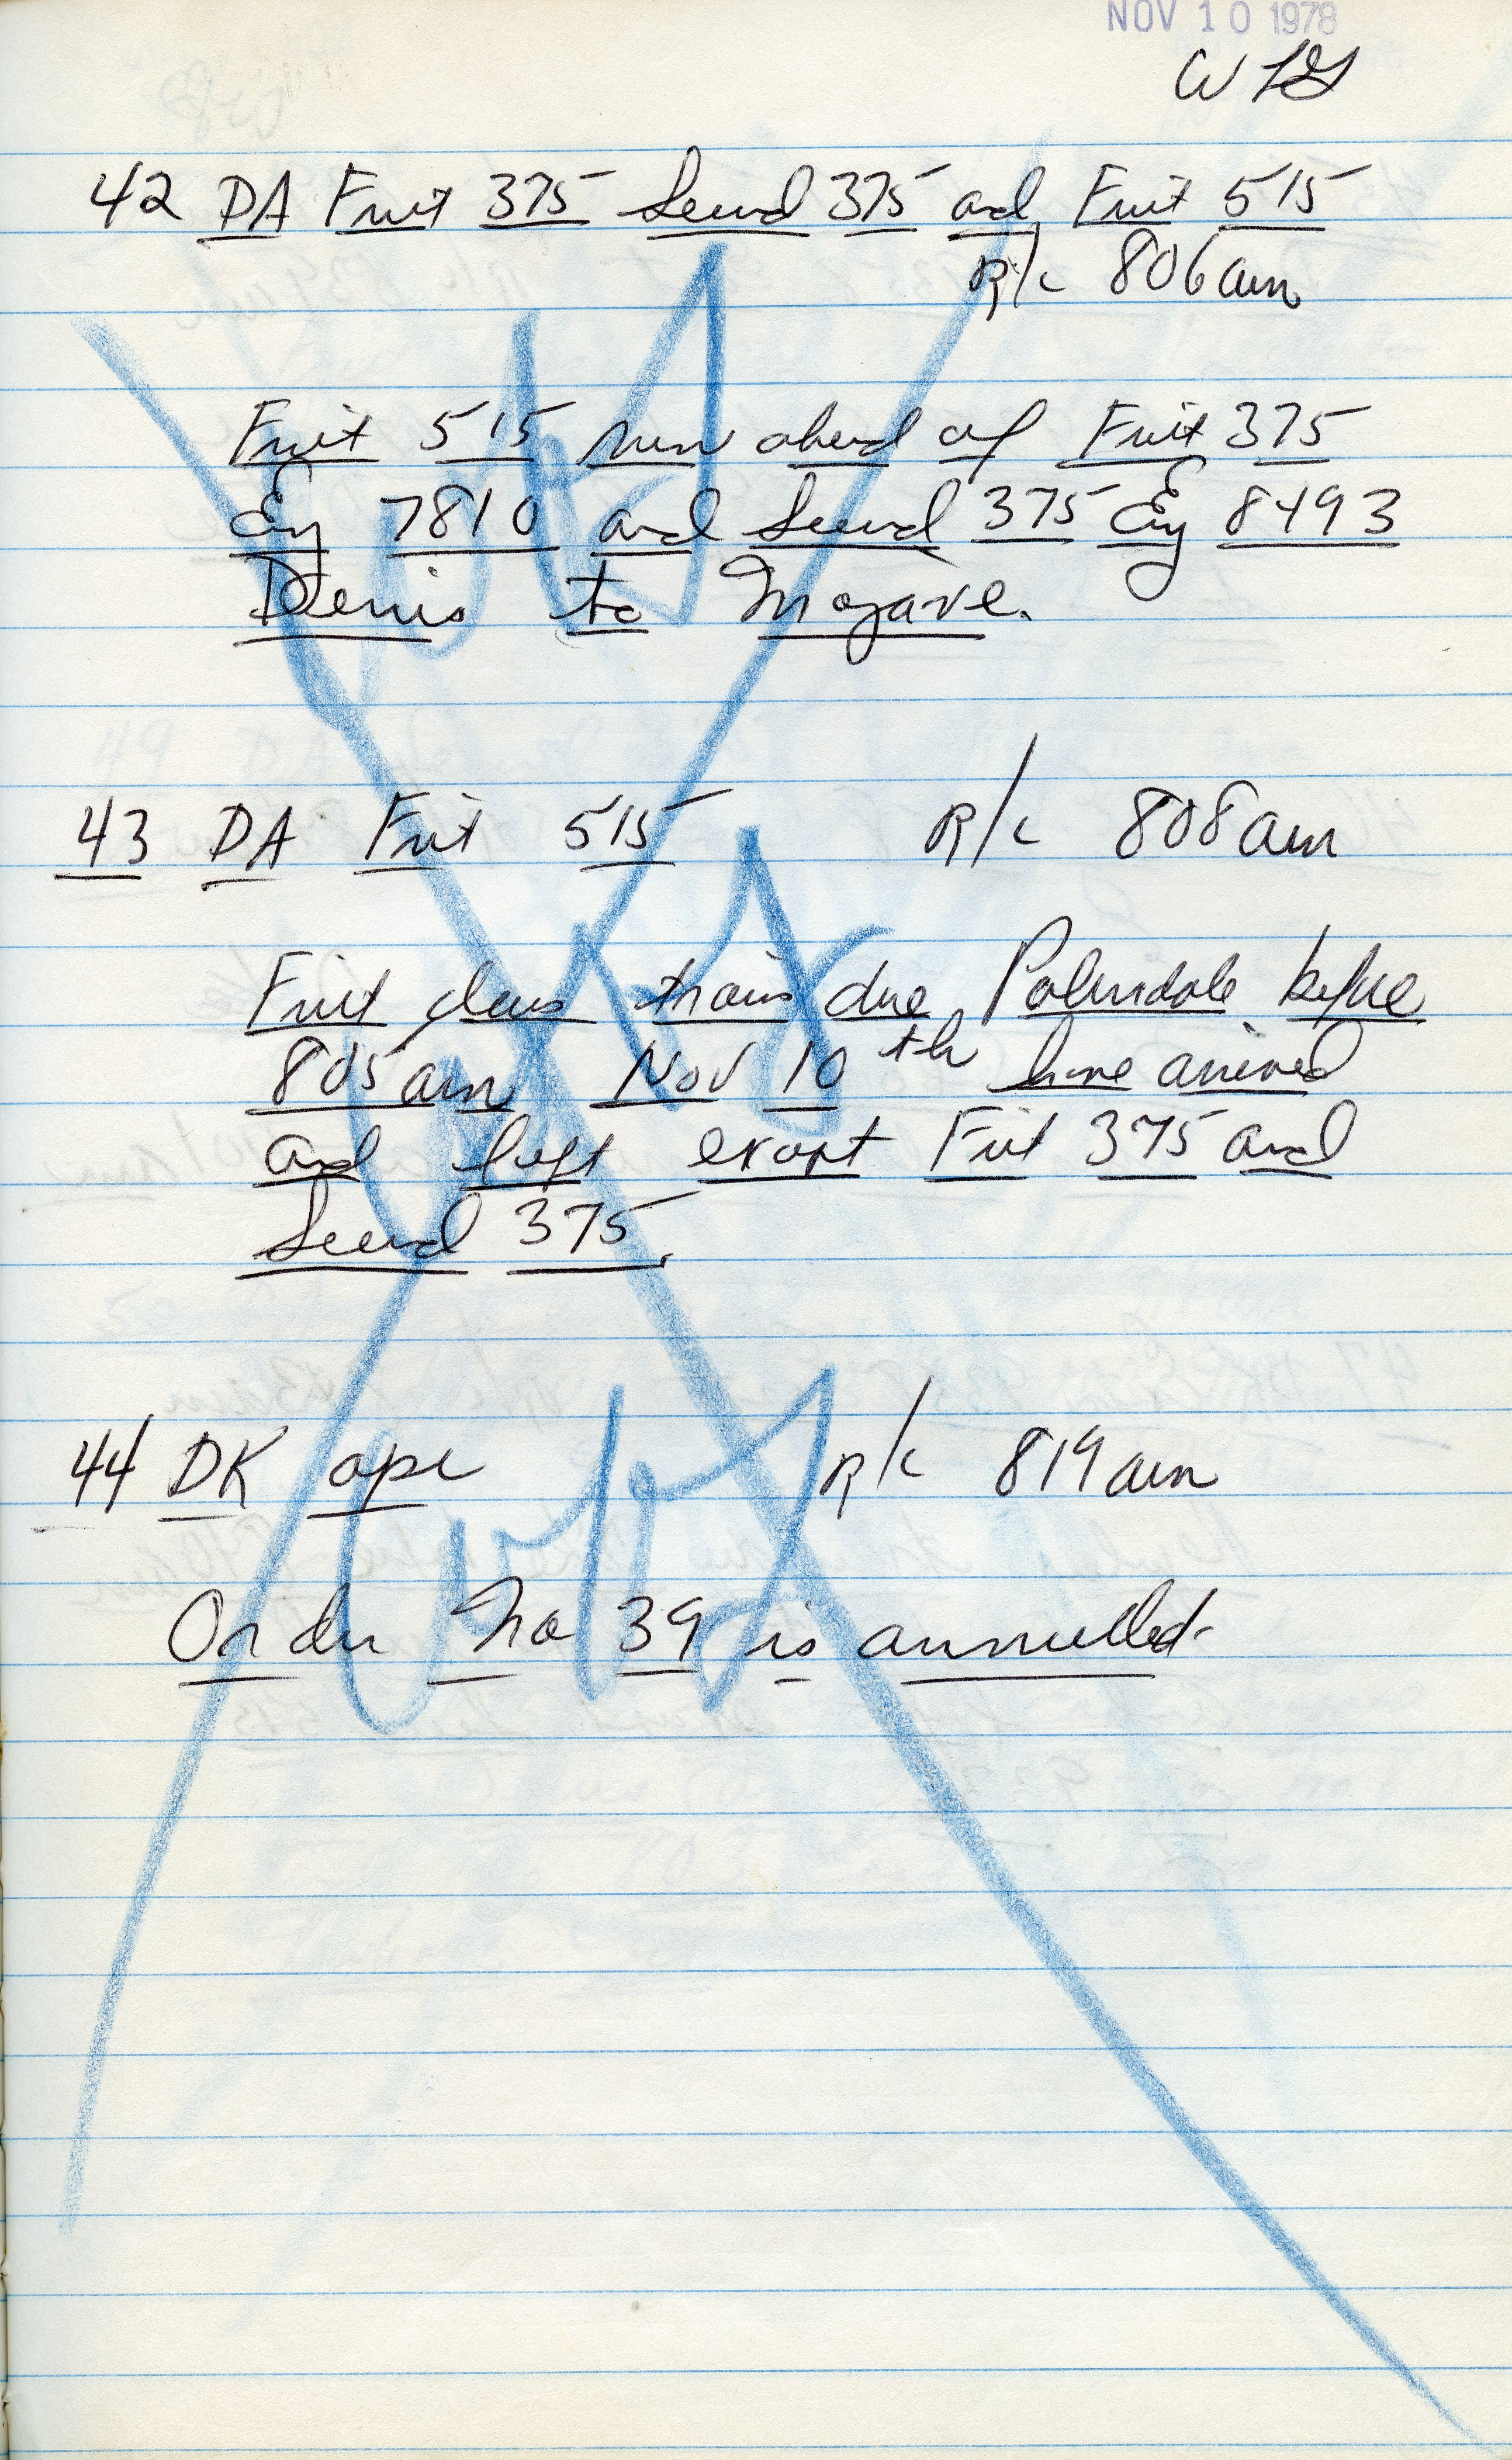 NOV 10 1978
WLS
42 DA First 375 Second 375 and First 515
R/c 806am
First 515 run ahead of First 375
Eng 7810 and Second 375 Eng 8493
Denis to Mojave.
43 DA First 515 R/c 808am
First class trains due Palmdale before
805am Nov 10th have arrived
and left except First 375 and
Second 375.
44 DK opr R/c 819am
Order No 39 is annulled.